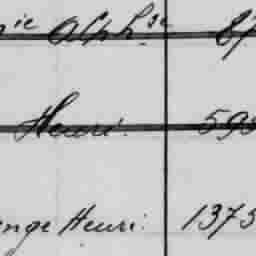 ie Alph.se 87
Henri. 595
enge Henri. 1375